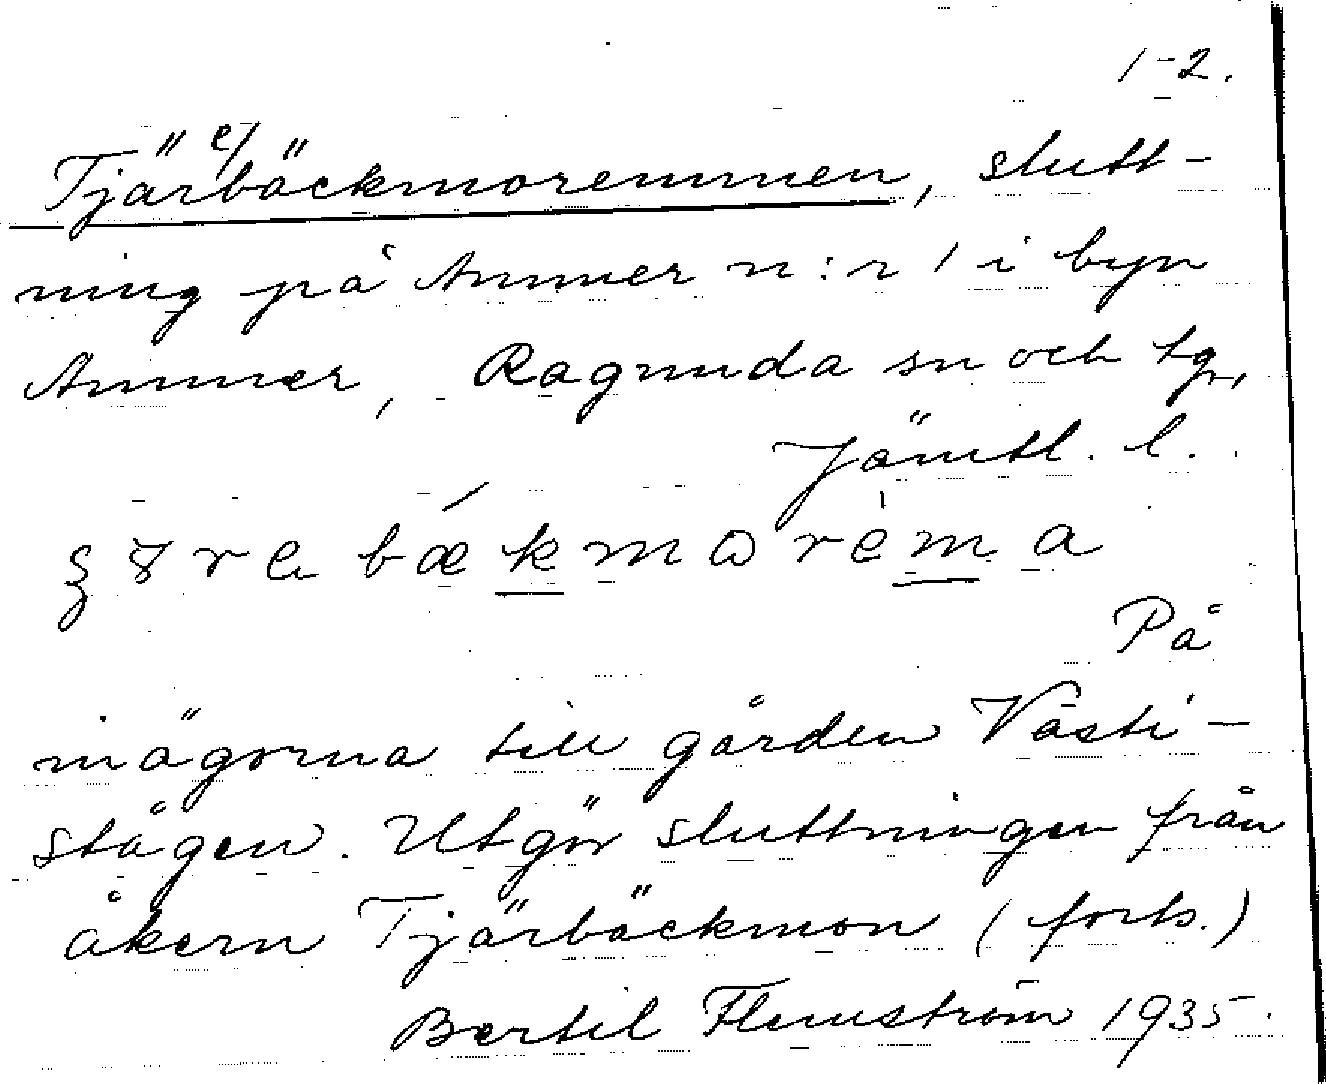 1-2.
Tjär e/bäckmoremmen, slutt-
ning på Ammer n:r 1 i byn
Ammer, Ragunda sn och tg,
Jämtl. l.
bækmorèma
På
inägorna till gården Västi-
stågen. Utgör sluttningen från
åkern Tjärbäckmon (forts.)
Bertil Flemström 1935.